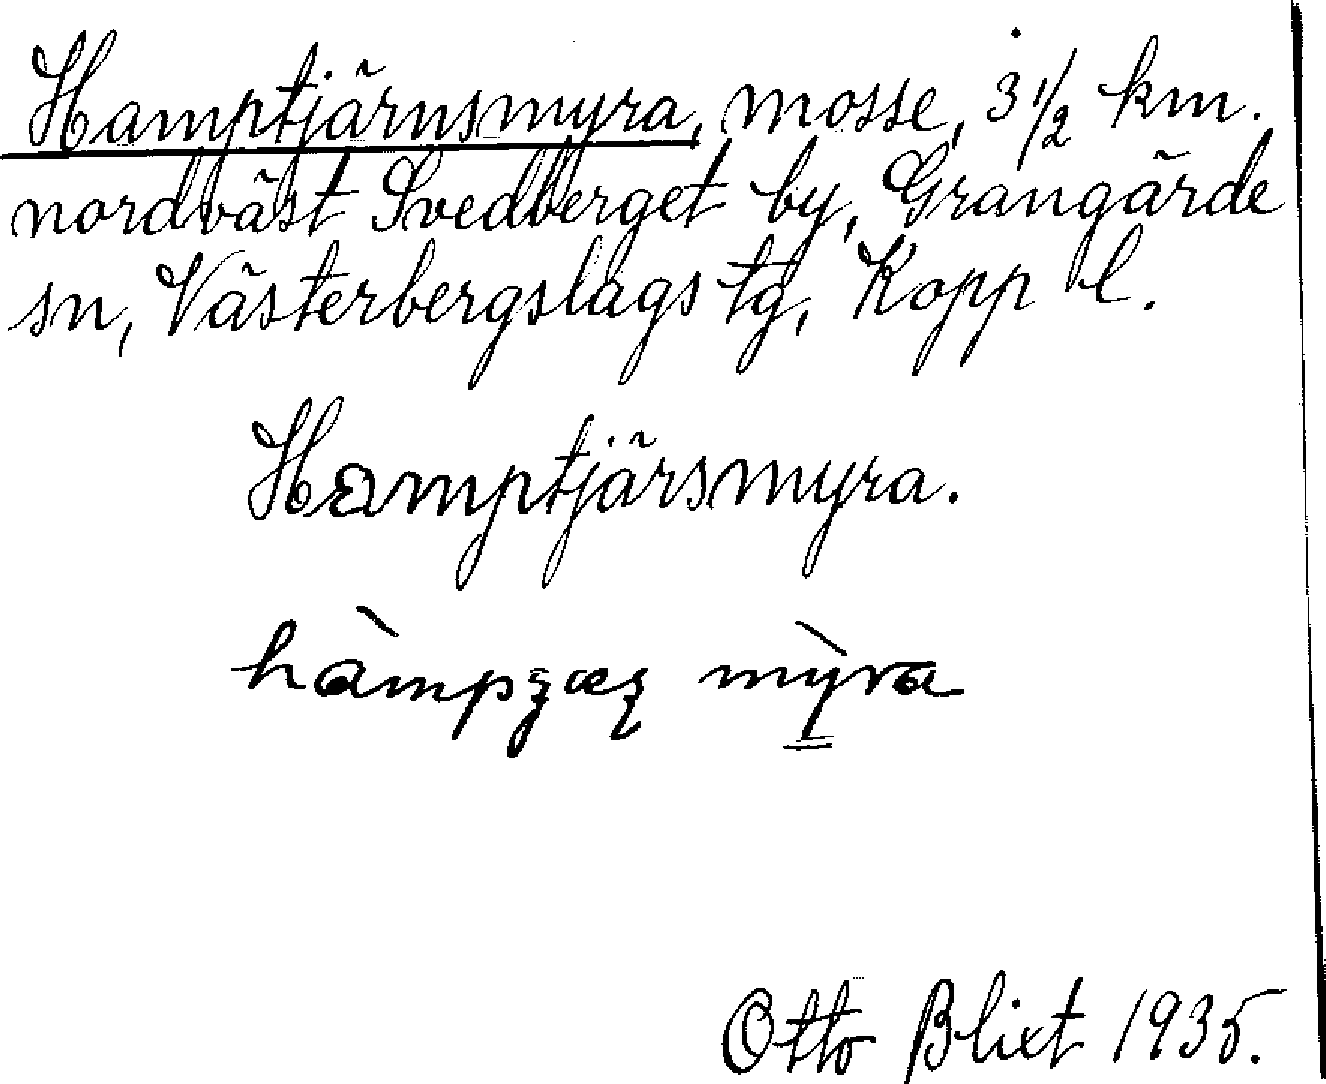 Hamptjärnsmyra, mosse, 3 1/2 km.
nordväst Svedberget by, Grangärde
sn, Västerbergslags tg, Kopp l.
Hamptjärsmyra.
mỳra
Otto Blixt 1935.